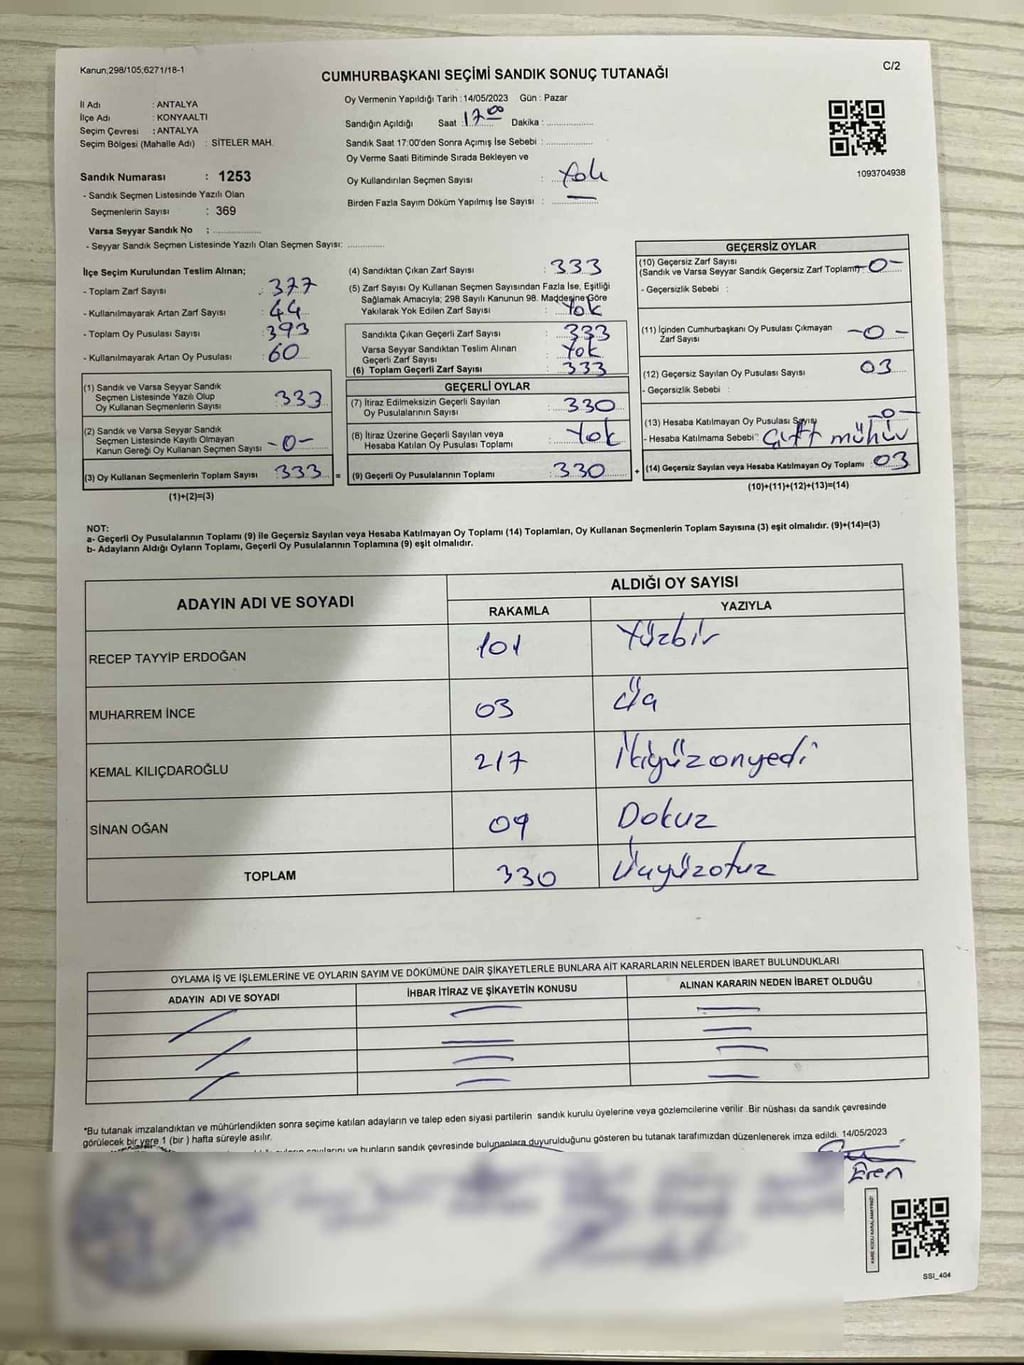 Kanun;298/105;6271/18-1
C/2
CUMHURBAŞKANI SEÇİMİ SANDIK SONUÇ TUTANAĞI
İl Adı : ANTALYA
İlçe Adı : KONYAALTI
Seçim Çevresi : ANTALYA
Seçim Bölgesi (Mahalle Adı) : SİTELER MAH.
Sandık Numarası : 1253
- Sandık Seçmen Listesinde Yazılı Olan
Seçmenlerin Sayısı : 369
Varsa Seyyar Sandık No : ..............
- Seyyar Sandık Seçmen Listesinde Yazılı Olan Seçmen Sayısı: ............
Oy Vermenin Yapıldığı Tarih : 14/05/2023 Gün : Pazar
Sandığın Açıldığı Saat : 17.00 Dakika : ..............
Sandık Saat 17:00'den Sonra Açımış İse Sebebi : ..............
Oy Verme Saati Bitiminde Sırada Bekleyen ve
Oy Kullandırılan Seçmen Sayısı : Yok
Birden Fazla Sayım Döküm Yapılmış İse Sayısı : —
1093704938
İlçe Seçim Kurulundan Teslim Alınan;
- Toplam Zarf Sayısı : 377
- Kullanılmayarak Artan Zarf Sayısı : 44
- Toplam Oy Pusulası Sayısı : 393
- Kullanılmayarak Artan Oy Pusulası : 60
(1) Sandık ve Varsa Seyyar Sandık
Seçmen Listesinde Yazılı Olup
Oy Kullanan Seçmenlerin Sayısı : 333
(2) Sandık ve Varsa Seyyar Sandık
Seçmen Listesinde Kayıtlı Olmayan
Kanun Gereği Oy Kullanan Seçmen Sayısı : -0-
(3) Oy Kullanan Seçmenlerin Toplam Sayısı : 333 =
(1)+(2)=(3)
(4) Sandıktan Çıkan Zarf Sayısı : 333
(5) Zarf Sayısı Oy Kullanan Seçmen Sayısından Fazla İse, Eşitliği
Sağlamak Amacıyla; 298 Sayılı Kanunun 98. Maddesine Göre
Yakılarak Yok Edilen Zarf Sayısı : Yok
Sandıkta Çıkan Geçerli Zarf Sayısı : 333
Varsa Seyyar Sandıktan Teslim Alınan
Geçerli Zarf Sayısı : Yok
(6) Toplam Geçerli Zarf Sayısı : 333
GEÇERLİ OYLAR
(7) İtiraz Edilmeksizin Geçerli Sayılan
Oy Pusulalarının Sayısı : 330
(8) İtiraz Üzerine Geçerli Sayılan veya
Hesaba Katılan Oy Pusulası Toplamı : Yok
(9) Geçerli Oy Pusulalarının Toplamı : 330 +
GEÇERSİZ OYLAR
(10) Geçersiz Zarf Sayısı
(Sandık ve Varsa Seyyar Sandık Geçersiz Zarf Toplamı) -0-
- Geçersizlik Sebebi :
(11) İçinden Cumhurbaşkanı Oy Pusulası Çıkmayan
Zarf Sayısı -0-
(12) Geçersiz Sayılan Oy Pusulası Sayısı 03
- Geçersizlik Sebebi :
(13) Hesaba Katılmayan Oy Pusulası Sayısı -0-
- Hesaba Katılmama Sebebi : Çift mühür
(14) Geçersiz Sayılan veya Hesaba Katılmayan Oy Toplamı : 03
(10)+(11)+(12)+(13)=(14)
NOT:
a- Geçerli Oy Pusulalarının Toplamı (9) ile Geçersiz Sayılan veya Hesaba Katılmayan Oy Toplamı (14) Toplamları, Oy Kullanan Seçmenlerin Toplam Sayısına (3) eşit olmalıdır. (9)+(14)=(3)
b- Adayların Aldığı Oyların Toplamı, Geçerli Oy Pusulalarının Toplamına (9) eşit olmalıdır.
ADAYIN ADI VE SOYADI
ALDIĞI OY SAYISI
RAKAMLA YAZIYLA
RECEP TAYYİP ERDOĞAN 101 Yüzbir
MUHARREM İNCE 03 Üç
KEMAL KILIÇDAROĞLU 217 İkiyüzonyedi
SİNAN OĞAN 09 Dokuz
TOPLAM 330 Üçyüzotuz
OYLAMA İŞ VE İŞLEMLERİNE VE OYLARIN SAYIM VE DÖKÜMÜNE DAİR ŞİKAYETLERLE BUNLARA AİT KARARLARIN NELERDEN İBARET BULUNDUKLARI
ADAYIN ADI VE SOYADI İHBAR İTİRAZ VE ŞİKAYETİN KONUSU ALINAN KARARIN NEDEN İBARET OLDUĞU
*Bu tutanak imzalandıktan ve mühürlendikten sonra seçime katılan adayların ve talep eden siyasi partilerin sandık kurulu üyelerine veya gözlemcilerine verilir. Bir nüshası da sandık çevresinde
görülecek bir yere 1 (bir ) hafta süreyle asılır.
sayılarını ve bunların sandık çevresinde bulunanlara duyurulduğunu gösteren bu tutanak tarafımızdan düzenlenerek imza edildi. 14/05/2023
Eren
KARE KODU KARALAMAYINIZ!
SSI_404